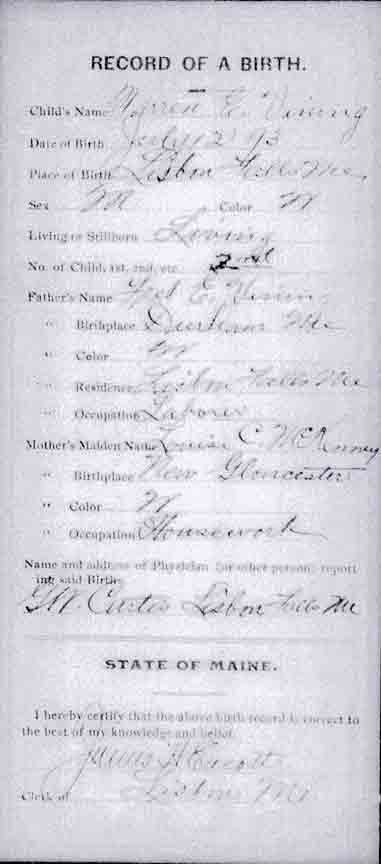 RECORD OF A BIRTH.
Child's Name Warren E. Vining
Date of Birth July 12 93
Place of Birth Lisbon Falls Me,
Sex M Color W
Living or Stillborn Living
No. of Child, 1st, 2nd, etc. 2nd
Father's Name Fred E. Vining
" Birthplace Durham Me
" Color W
" Residence Lisbon Falls Me
" Occupation Laborer
Mother's Maiden Name Louise C. McKenney
" Birthplace New Gloncester
" Color W
" Occupation Housework
Name and address of Physician (or other person) report
ing said Birth,
G.W. Curtis Lisbon Falls Me
STATE OF MAINE.
I hereby certify that the above birth record is correct to
the best of my knowledge and belief.
James H
Clerk of Lisbon Me